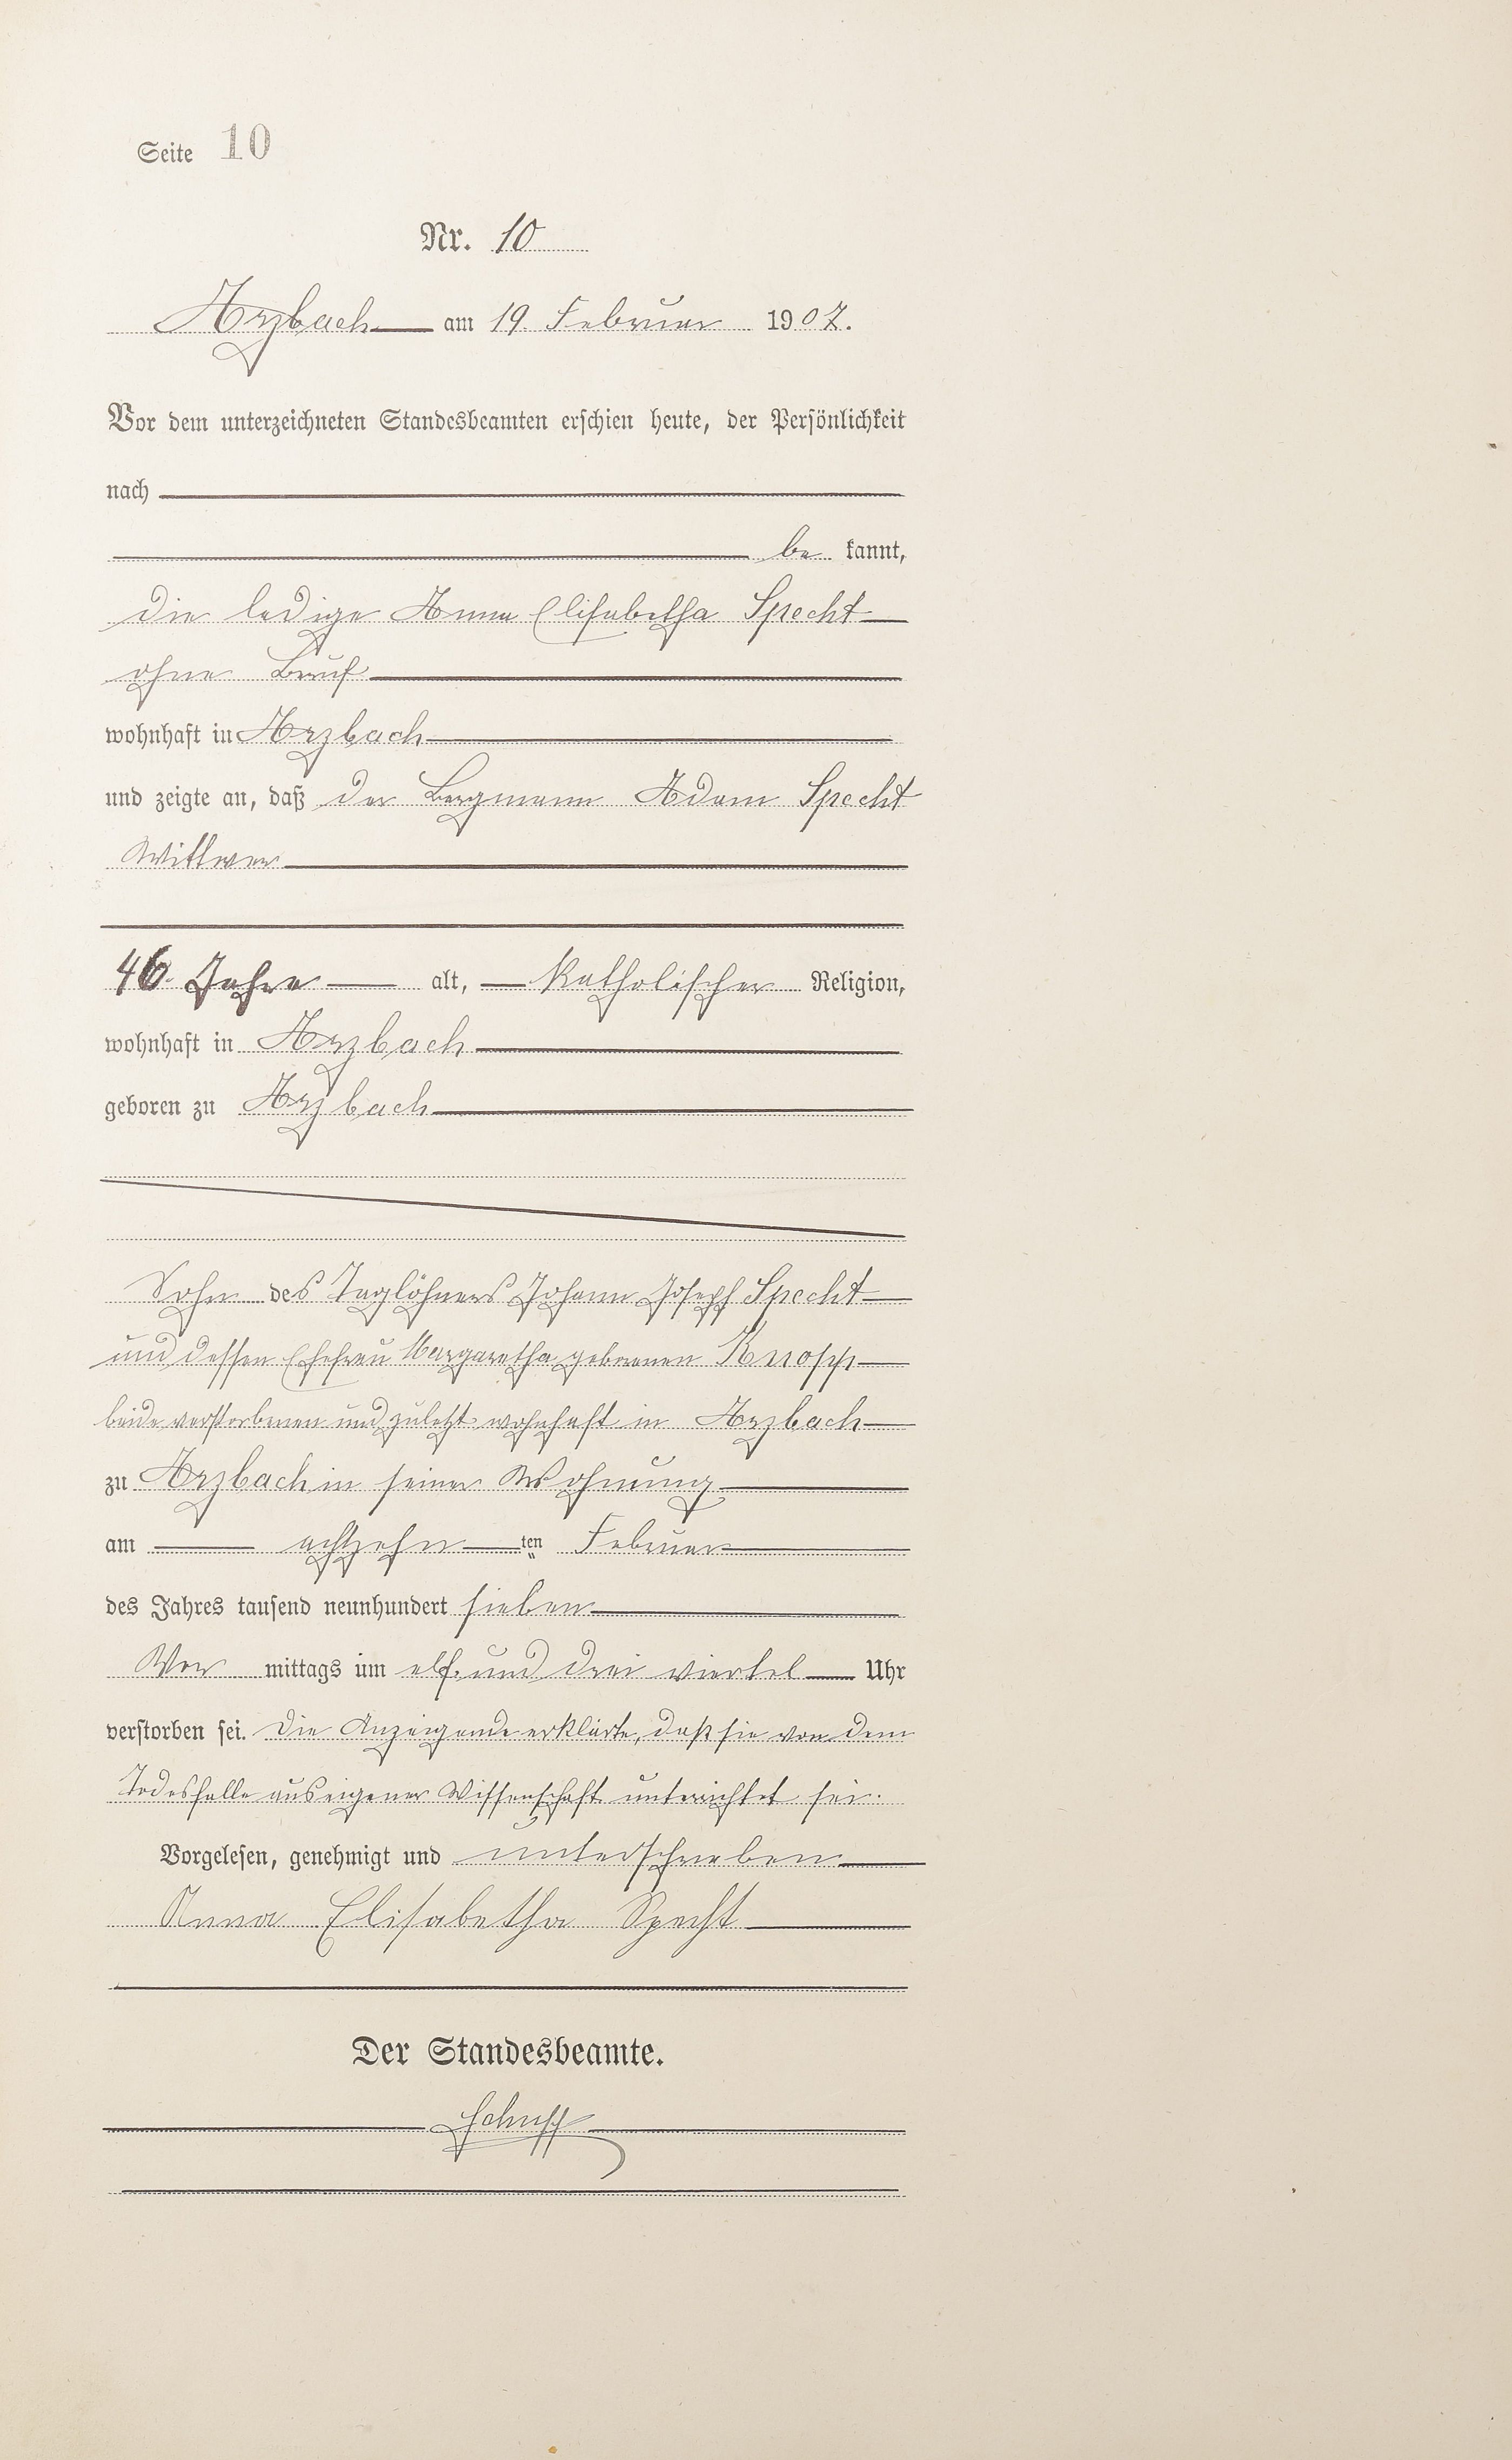 Seite 10
Nr. 10
Arzbach am 19. Februar 1907.
Vor dem unterzeichneten Standesbeamten erschien heute, der Persönlichkeit
nach
be kannt,
die ledige Anna Elisabetha Specht
ohne Beruf
wohnhaft in Arzbach
und zeigte an, daß der Bergmann Adam Specht
Wittwer
46 Jahre alt, katholischer Religion,
wohnhaft in Arzbach
geboren zu Arzbach
Sohn des Taglöhners Johann Joseph Specht
und dessen Ehefrau Margaretha geborenen Knopp
beide verstorbenen und zuletzt wohnhaft in Arzbach
zu Arzbach in seiner Wohnung
am achtzehn ten Februar
des Jahres tausend neunhundert sieben
Vor mittags um elf und drei viertel Uhr
verstorben sei. Die Anzeigende erklärte, daß sie von dem
Todesfalle aus eigener Wissenschaft unterrichtet sei.
Vorgelesen, genehmigt und unterschrieben
Anna Elisabetha Specht
Der Standesbeamte.